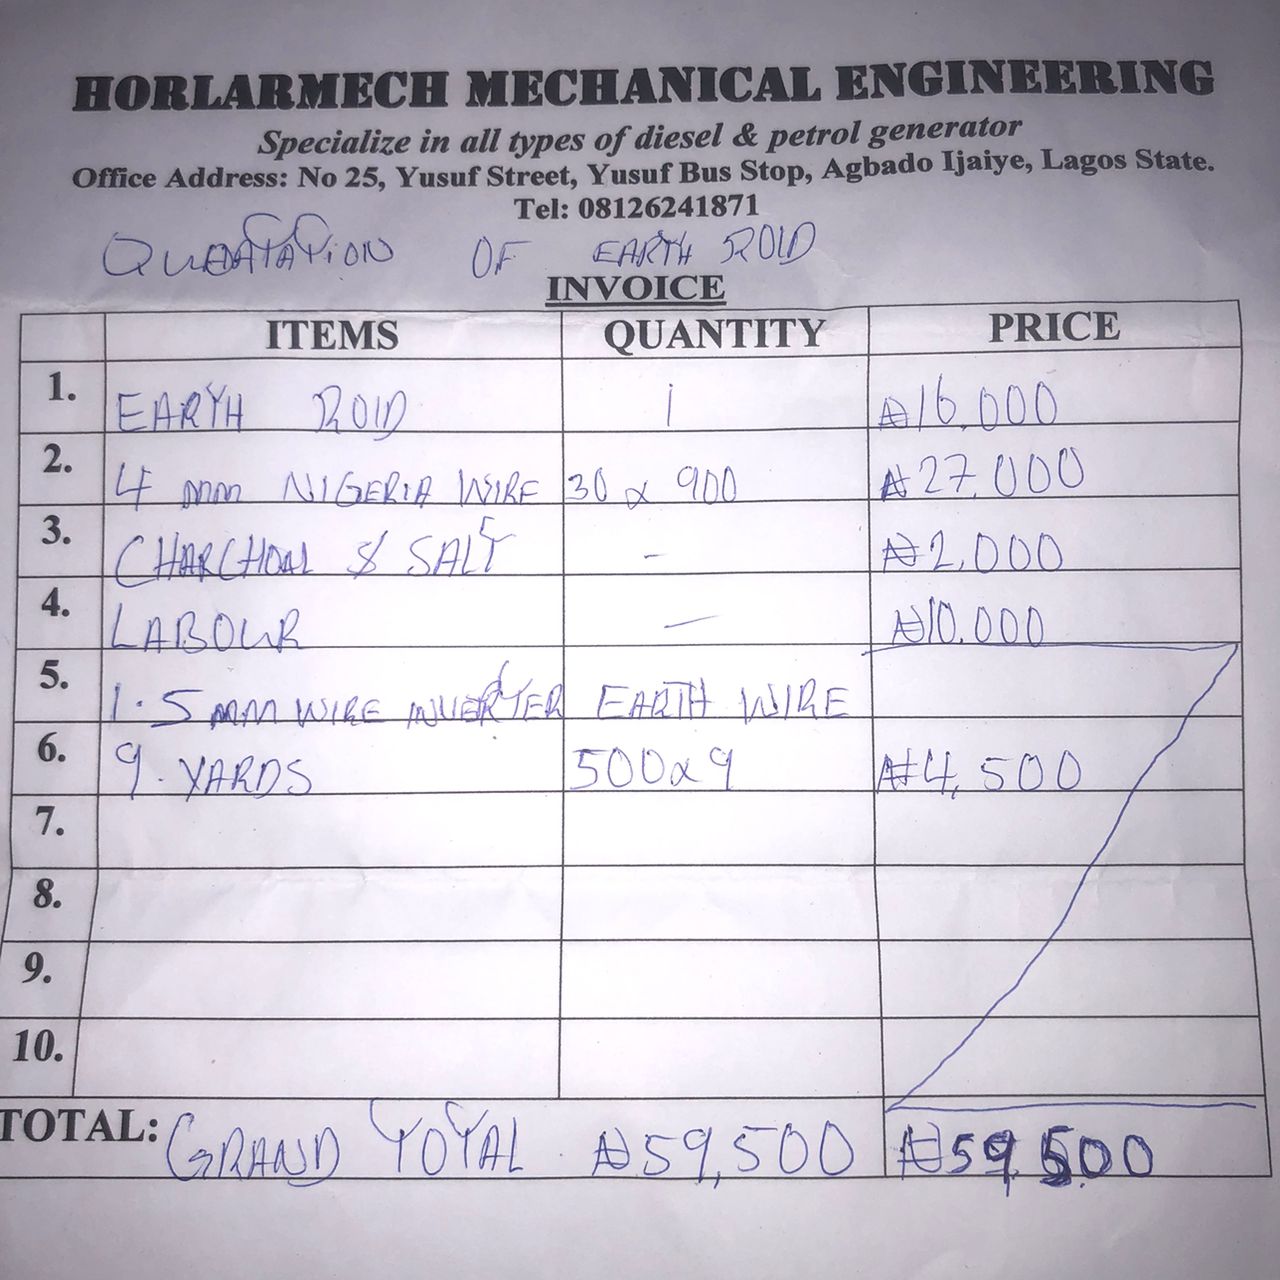 HORLARMECH MECHANICAL ENGINEERING
Specialize in all types of diesel & petrol generator
Office Address: No 25, Yusuf Street, Yusuf Bus Stop, Agbado Ijaiye, Lagos State.
Tel: 08126241871
OF EARTH ROID
INVOICE
ITEMS QUANTITY PRICE
1. EARTH ROID 1 ₦16,000
2. 4 mm NIGERIA WIRE 30 x 900 ₦27,000
3. CHARCHOAL & SALT - ₦2,000
4. LABOUR - ₦10,000
5. 1.5 mm WIRE INVERTER EARTH WIRE
6. 9. YARDS 500x9 ₦4,500
7.
8.
9.
10.
TOTAL: GRAND TOTAL ₦59,500 ₦59,500